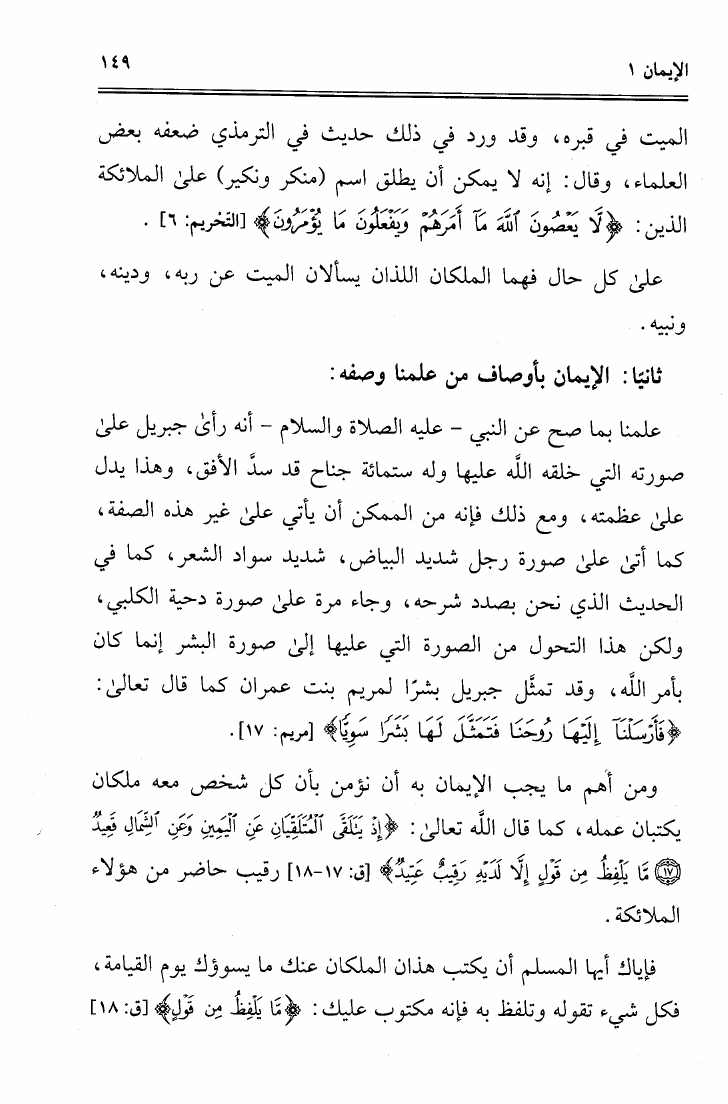 الإيمان ١ ١٤٩
الميت في قبره، وقد ورد في ذلك حديث في الترمذي ضعفه بعض
العلماء، وقال: إنه لا يمكن أن يطلق اسم (منكر ونكير) علىٰ الملائكة
الذين: ﴿لَّا يَعْصُونَ ٱللَّهَ مَآ أَمَرَهُمْ وَيَفْعَلُونَ مَا يُؤْمَرُونَ﴾ [التّحريم: ٦] .
علىٰ كل حال فهما الملكان اللذان يسألان الميت عن ربه، ودينه،
ونبيه .
ثانيًا: الإيمان بأوصاف من علمنا وصفه:
علمنا بما صح عن النبي – عليه الصلاة والسلام – أنه رأىٰ جبريل علىٰ
صورته التي خلقه اللَّه عليها وله ستمائة جناح قد سدَّ الأفق، وهذا يدل
علىٰ عظمته، ومع ذلك فإنه من الممكن أن يأتي علىٰ غير هذه الصفة،
كما أتىٰ علىٰ صورة رجل شديد البياض، شديد سواد الشعر، كما في
الحديث الذي نحن بصدد شرحه، وجاء مرة علىٰ صورة دحية الكلبي،
ولكن هذا التحول من الصورة التي عليها إلىٰ صورة البشر إنما كان
بأمر اللَّه، وقد تمثَّل جبريل بشرًا لمريم بنت عمران كما قال تعالىٰ:
﴿فَأَرْسَلْنَآ إِلَيْهَا رُوحَنَا فَتَمَثَّلَ لَهَا بَشَرًا سَوِيًّا﴾ [مريم: ١٧].
ومن أهم ما يجب الإيمان به أن نؤمن بأن كل شخص معه ملكان
يكتبان عمله، كما قال اللَّه تعالىٰ: ﴿إِذْ يَتَلَقَّى ٱلْمُتَلَقِّيَانِ عَنِ ٱلْيَمِينِ وَعَنِ ٱلشِّمَالِ قَعِيدٌ
١٧ مَّا يَلْفِظُ مِن قَوْلٍ إِلَّا لَدَيْهِ رَقِيبٌ عَتِيدٌ﴾ [ق: ١٧-١٨] رقيب حاضر من هؤلاء
الملائكة .
فإياك أيها المسلم أن يكتب هذان الملكان عنك ما يسوؤك يوم القيامة،
فكل شيء تقوله وتلفظ به فإنه مكتوب عليك: ﴿مَّا يَلْفِظُ مِن قَوْلٍ﴾ [ق: ١٨]